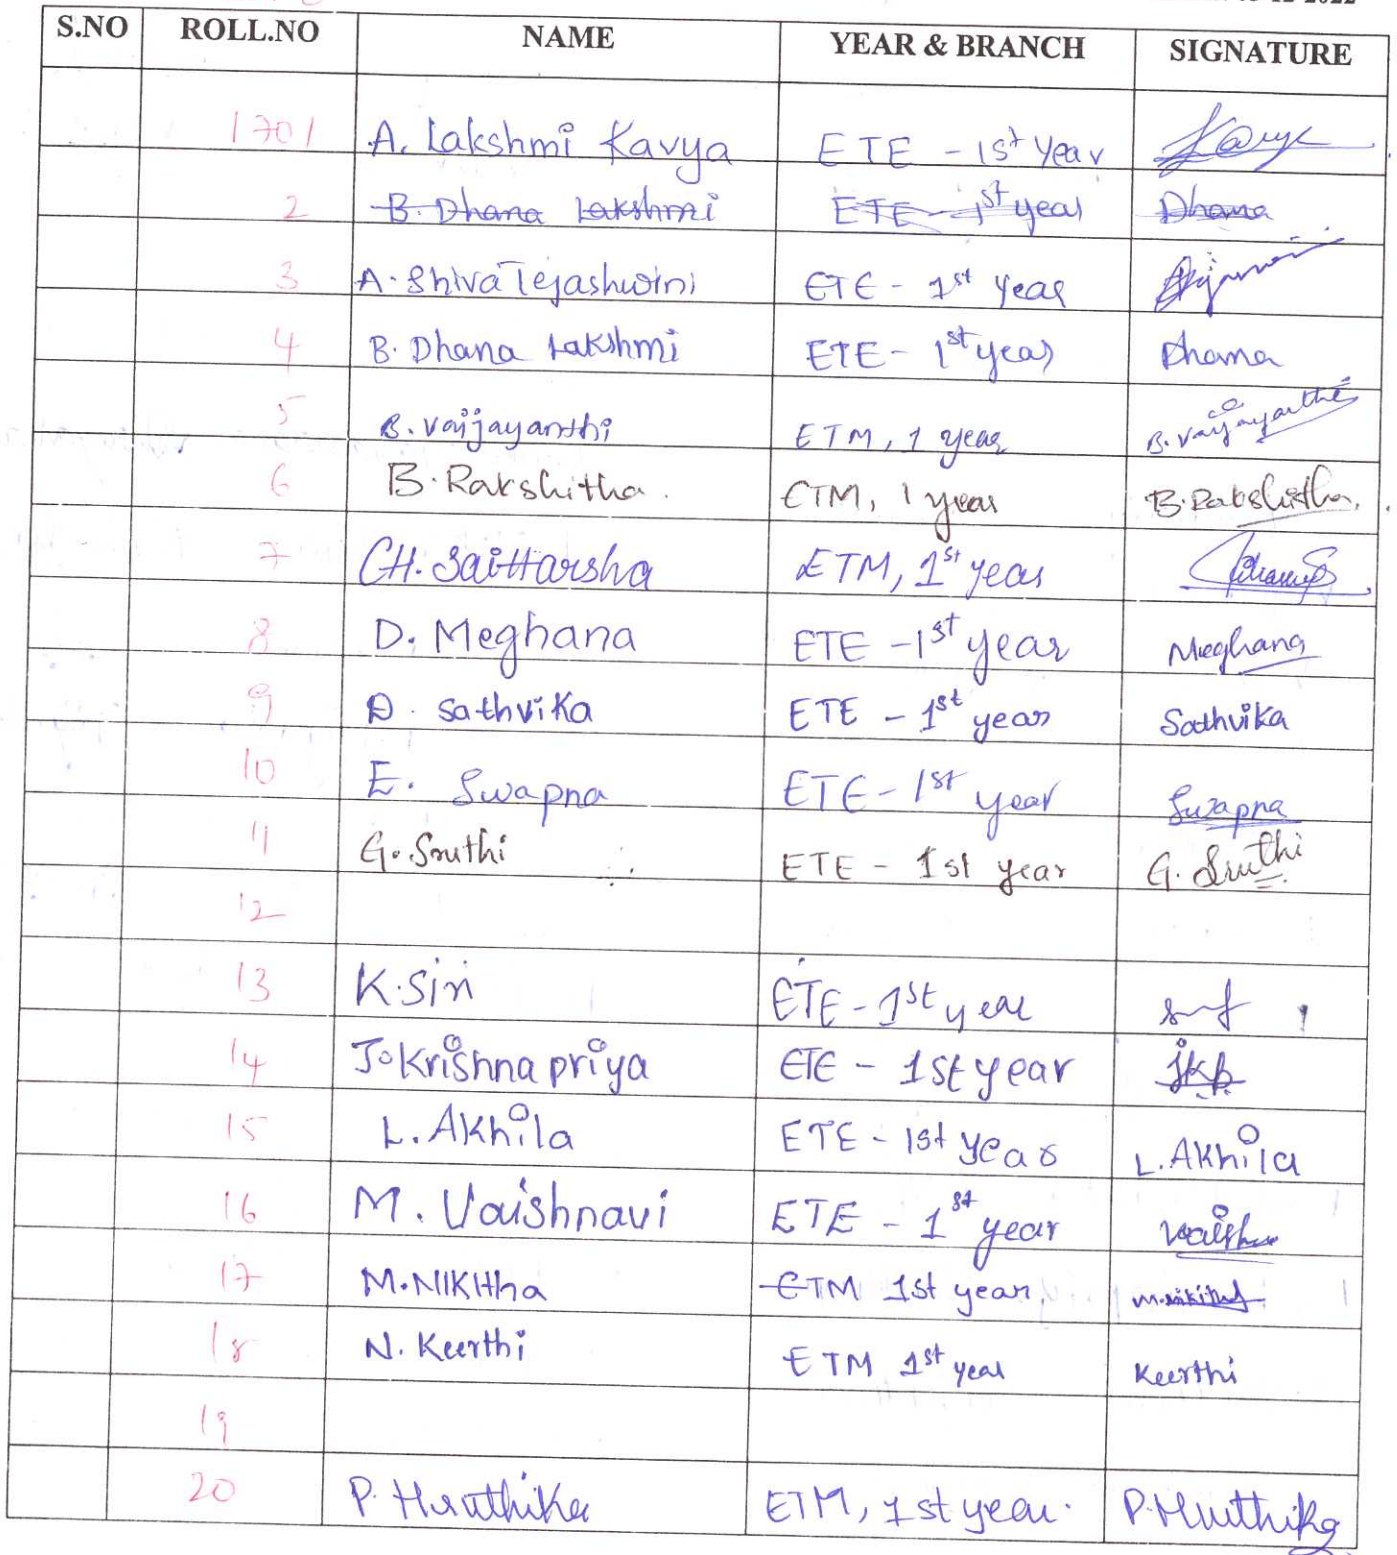 12-2022
S.NO ROLL.NO NAME YEAR & BRANCH SIGNATURE
1701 A. Lakshmi Kavya ETE - 1st Year Kavya
2 B. Dhana Lakshmi ETE - 1st year Dhana
3 A. Shiva Tejashwini ETE - 1st year
4 B. Dhana Lakshmi ETE - 1st year Dhana
5 B. Vaijayanthi ETM, 1 year B. Vaijayanthi
6 B. Rakshitha. ETM, 1 year B. Rakshitha.
7 CH. SaiHarsha ETM, 1st year
8 D. Meghana ETE - 1st year Meghana
9 D. Sathvika ETE - 1st year Sathvika
10 E. Swapna ETE - 1st year Swapna
11 G. Sruthi ETE - 1st year G. Sruthi
12
13 K. Siri ETE - 1st year
14 J. Krishna priya ETE - 1st year jkp
15 L. Akhila ETE - 1st year L. Akhila
16 M. Vaishnavi ETE - 1st year
17 M. NIKItha ETM 1st year M. Nikitha
18 N. Keerthi ETM 1st year Keerthi
19
20 P. Hruthika ETM, 1st year. P. Hruthika